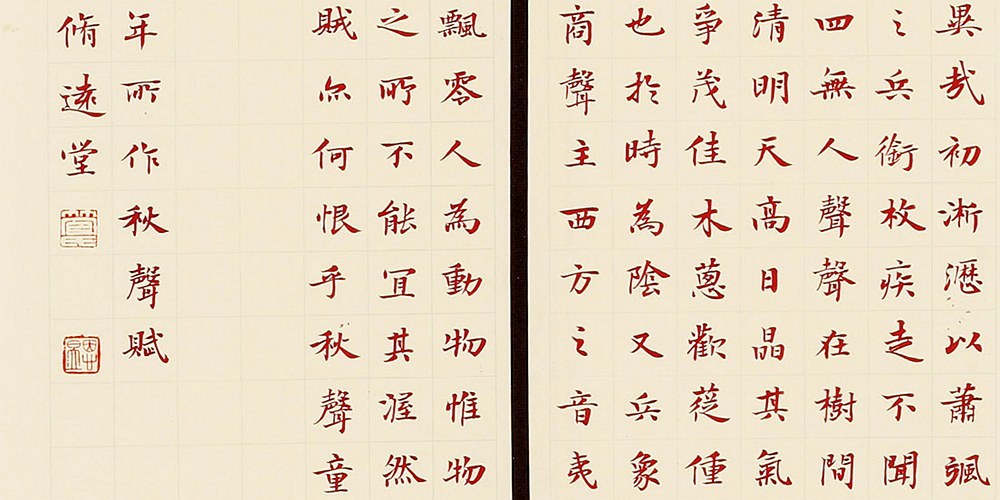 異哉初淅瀝以蕭颯
之兵銜枚疾走不聞
四無人聲聲在樹間
清明天高日晶其氣
爭茂佳木蔥歡蓯僮
也於時為陰又兵象
商聲主西方之音夷
飄零人為動物惟物
之所不能宜其渥然
賊亦何恨乎秋聲童
年所作秋聲賦
脩遠堂